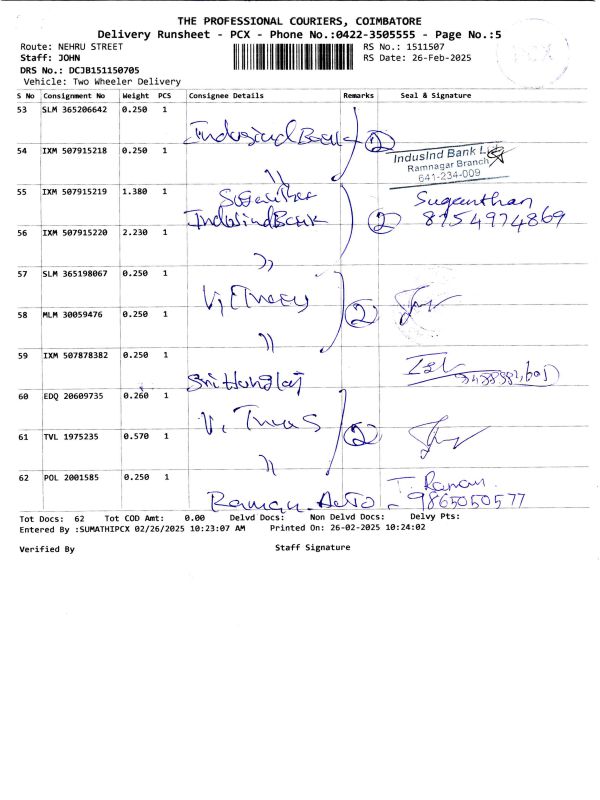 THE PROFESSIONAL COURIERS, COIMBATORE
Delivery Runsheet - PCX - Phone No.:0422-3505555 - Page No.:5
Route: NEHRU STREET
RS No.: 1511507
Staff: JOHN
RS Date: 26-Feb-2025
DRS No.: DCJB151150705
Vehicle: Two Wheeler Delivery
PCX
S No Consignment No Weight PCS Consignee Details Remarks Seal & Signature
53 SLM 365206642 0.250 1
IndusindBank 2
54 IXM 507915218 0.250 1
IndusInd Bank
Ramnagar Branch
641-234-009
〃
55 IXM 507915219 1.380 1
Suganthan
IndusindBank 2 8754974869
56 IXM 507915220 2.230 1
〃
57 SLM 365198067 0.250 1
58 MLM 30059476 0.250 1
2
〃
59 IXM 507878382 0.250 1
60 EDQ 20609735 0.260 1
61 TVL 1975235 0.570 1
2
〃
62 POL 2001585 0.250 1
T. Raman
Raman Auto - 9865050577
Tot Docs: 62 Tot COD Amt: 0.00 Delvd Docs: Non Delvd Docs: Delvy Pts:
Entered By :SUMATHIPCX 02/26/2025 10:23:07 AM Printed On: 26-02-2025 10:24:02
Verified By Staff Signature